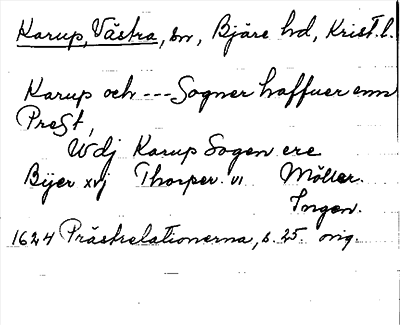 Karup, Västra, sn, Bjäre hd, Krist. l.
Karup och --- Sogner haffuer enn
Prest,
Wdj Karup Sogen ere
Bÿer xvj Thorper. vi Möller.
Ingen.
1624 Prästrelationerna, s. 25. orig.